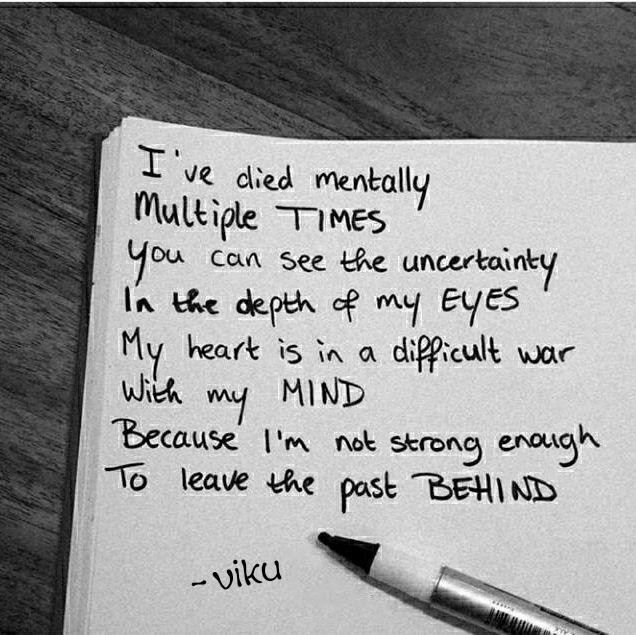 I've died mentally
Multiple TIMES
You can see the uncertainty
In the depth of my EYES
My heart is in a difficult war
With my MIND
Because I'm not strong enough
To leave the past BEHIND
- viku